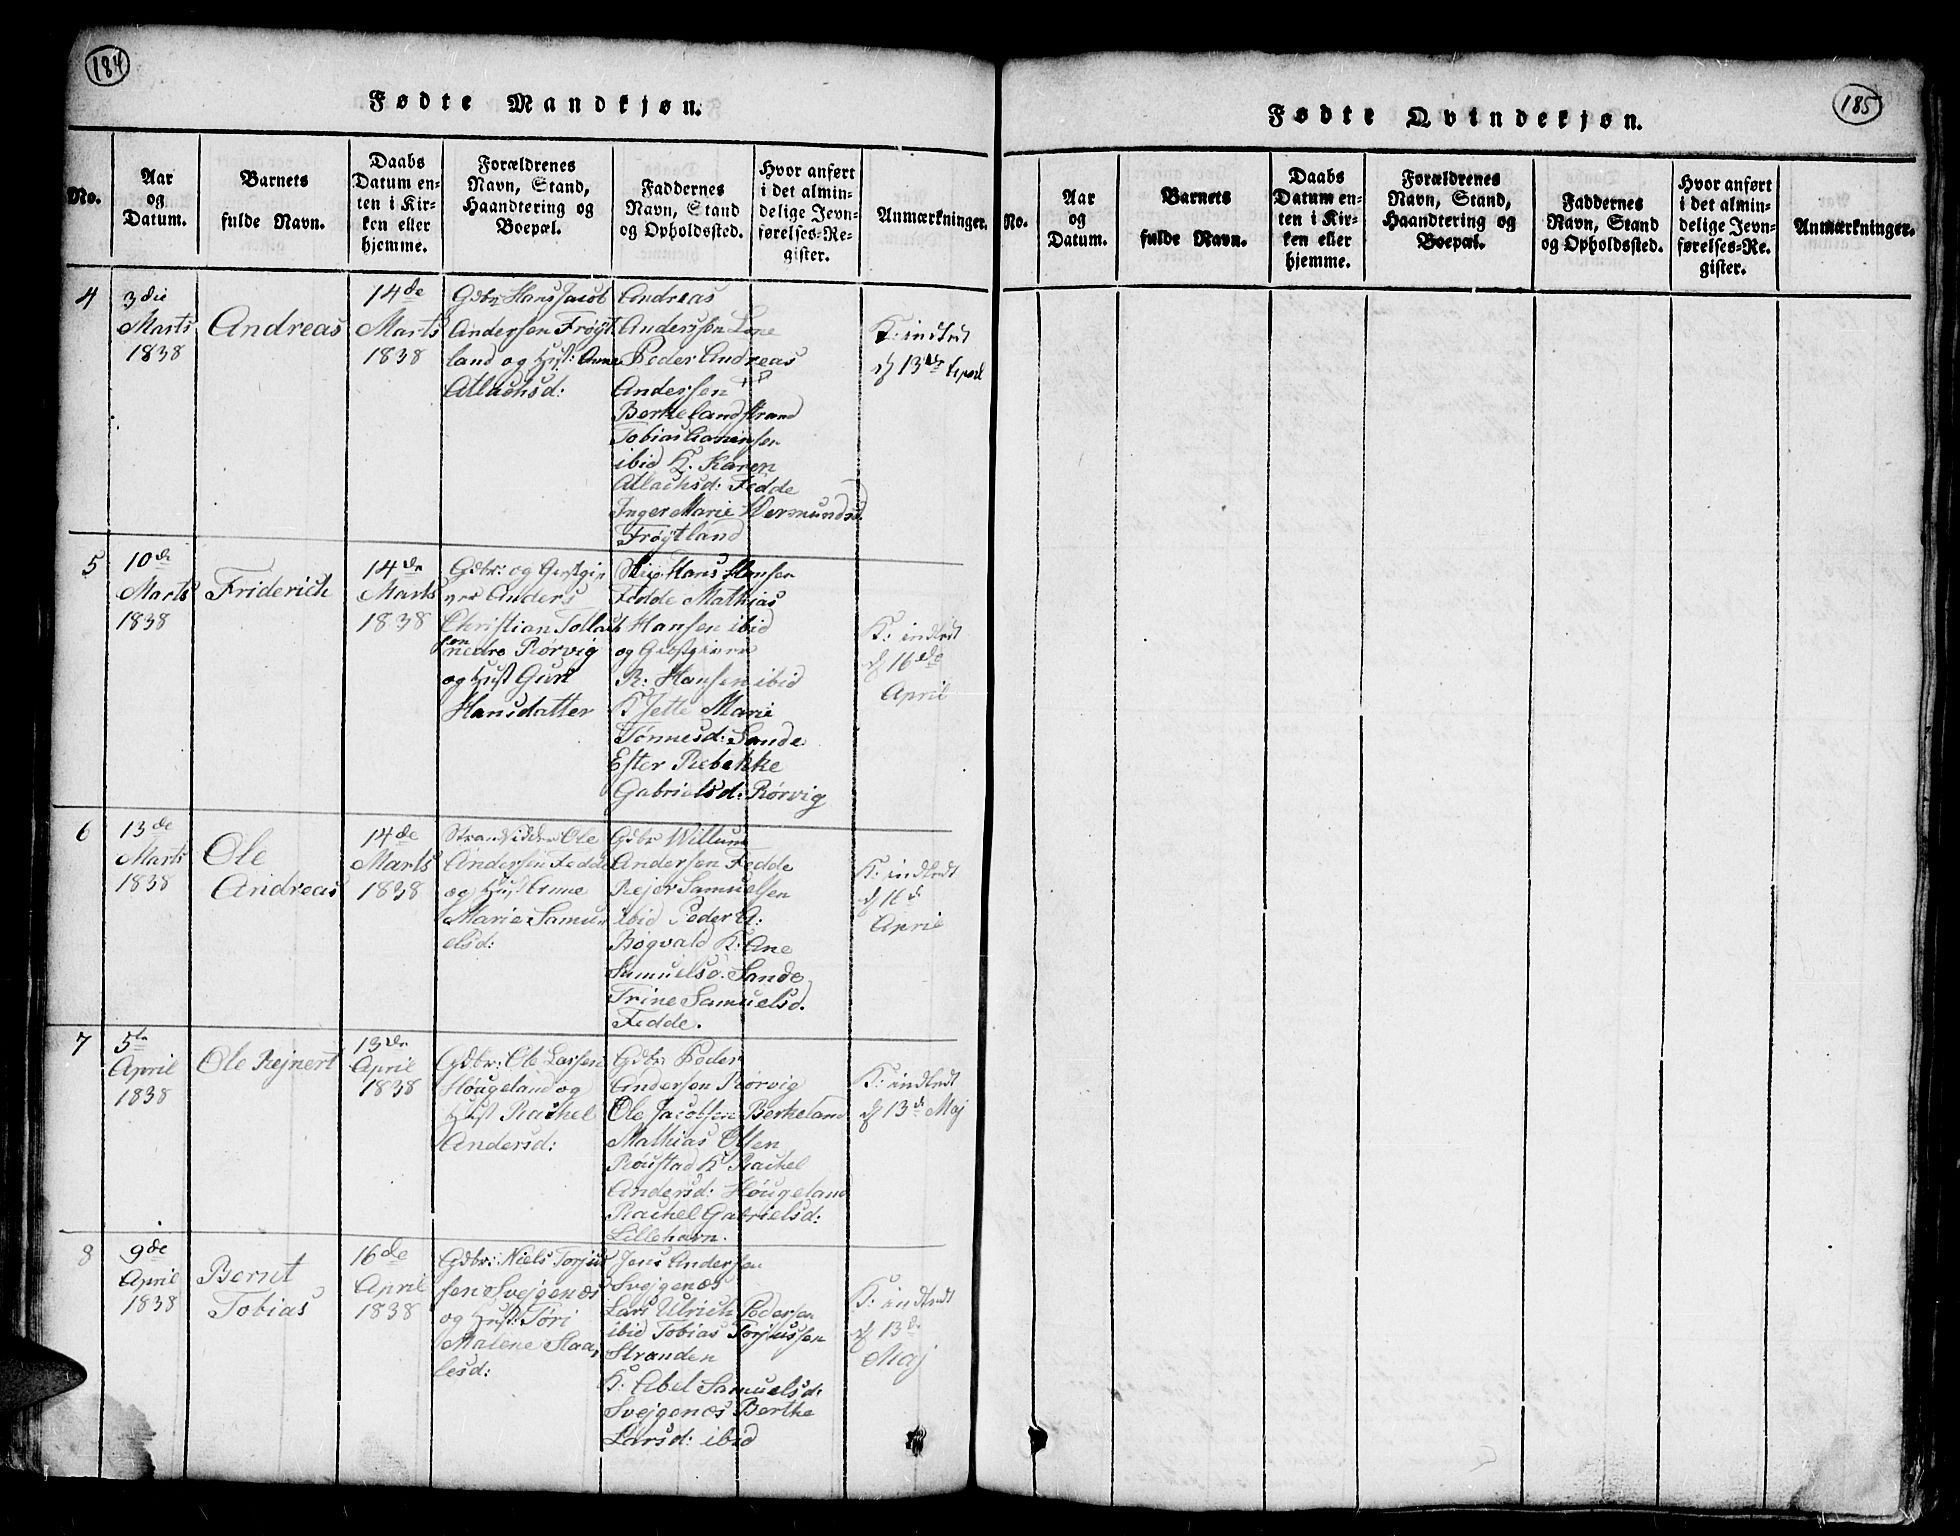 184
Fødte Mandkjøn.
No.
Aar
og
Datum.
Barnets
fulde Navn.
Daabs
Datum en-
ten i Kir-
ken eller
hjemme.
Forældrenes
Navn, Stand,
Haandtering og
Boepæl.
Faddernes
Navn, Stand
og Opholdssted.
Hvor anført
i det almin-
delige Jevn-
førelses-Re-
gister.
Anmærkninger.
4
3die
Marts
1838
Andreas
14de
Marts
1838
Gdbr Hans Jacob
Andersen Frøyt
land og Hust: Anne
Atlachsd:
Andreas
Anderssen Lone
Peder Andreas
Andersen
Berkelandstrand
Tobias
ibid K. Karen
Atlachsd: Fedde
Inger Marie Wermundsd.
Frøytland
K: indledt
13de April
5
10de
Marts
1838
Friderich
14de
Marts
1838
Gdbr: og Gestgi
ver Anders
Christian Tollach
sen nedre Rørvig
og Hust Guri
Hansdatter
Skip Hans Hansen
Fedde Mathias
Hansen ibid
og
R: Hansen ibid
K Jette Marie
Tønnesd: Sande
Ester Rebekke
Gabrielsd: Rørvig
K: indledt
16de
April
6
13de
Marts
1838
Ole
Andreas
14de
Marts
1838
Strandsidder Ole
Andersen Fedde
og Hust Anne
Marie Samu
elsd:
Gdbr Willum
Andersen Fedde
Rejer Samuelsen
ibid Peder A:
Bøgvald K: Ane
Samuelsd: Sande
Trine Samuelsd.
Fedde.
K: indledt
16de
April
7
5te
April
1838
Ole Rejnert
13de
April
1838
Gdbr: Ole Larsen
Høugeland og
Hust Rachel
Andersd:
Gdbr Peder
Andersen Rørvig
Ole Jacobsen Berkeland
Mathias Olsen
Røustad K Rachel
Andersd: Høugeland
Rachel Gabrielsd:
Lillehavn.
K: indledt
13de Maj
8
9de
April
1838
Bernt
Tobias
16de
April
1838
Gdbr: Niels Torjus
sen Svejgenæs
og Hust: Tøri
Malene Staa,
lesd:
Jens Andersen
Svejgenæs
Lars Ulrich Pedersen
ibid Tobias Torjussen
Stranden
K: Abel Samuelsd:
Svejgenæs Berthe
Larsd: ibid
K: indledt
13de
Maj
185
Fødte Qvindekjøn.
No.
Aar
og
Datum.
Barnets
fulde Navn.
Daabs
Datum en-
ten i Kir-
ken eller
hjemme.
Forældrenes
Navn, Stand,
Haandtering og
Boepæl.
Faddernes
Navn, Stand
og Opholdssted.
Hvor anført
i det almin-
delige Jevn-
førelses-Re-
gister.
Anmærkninger.